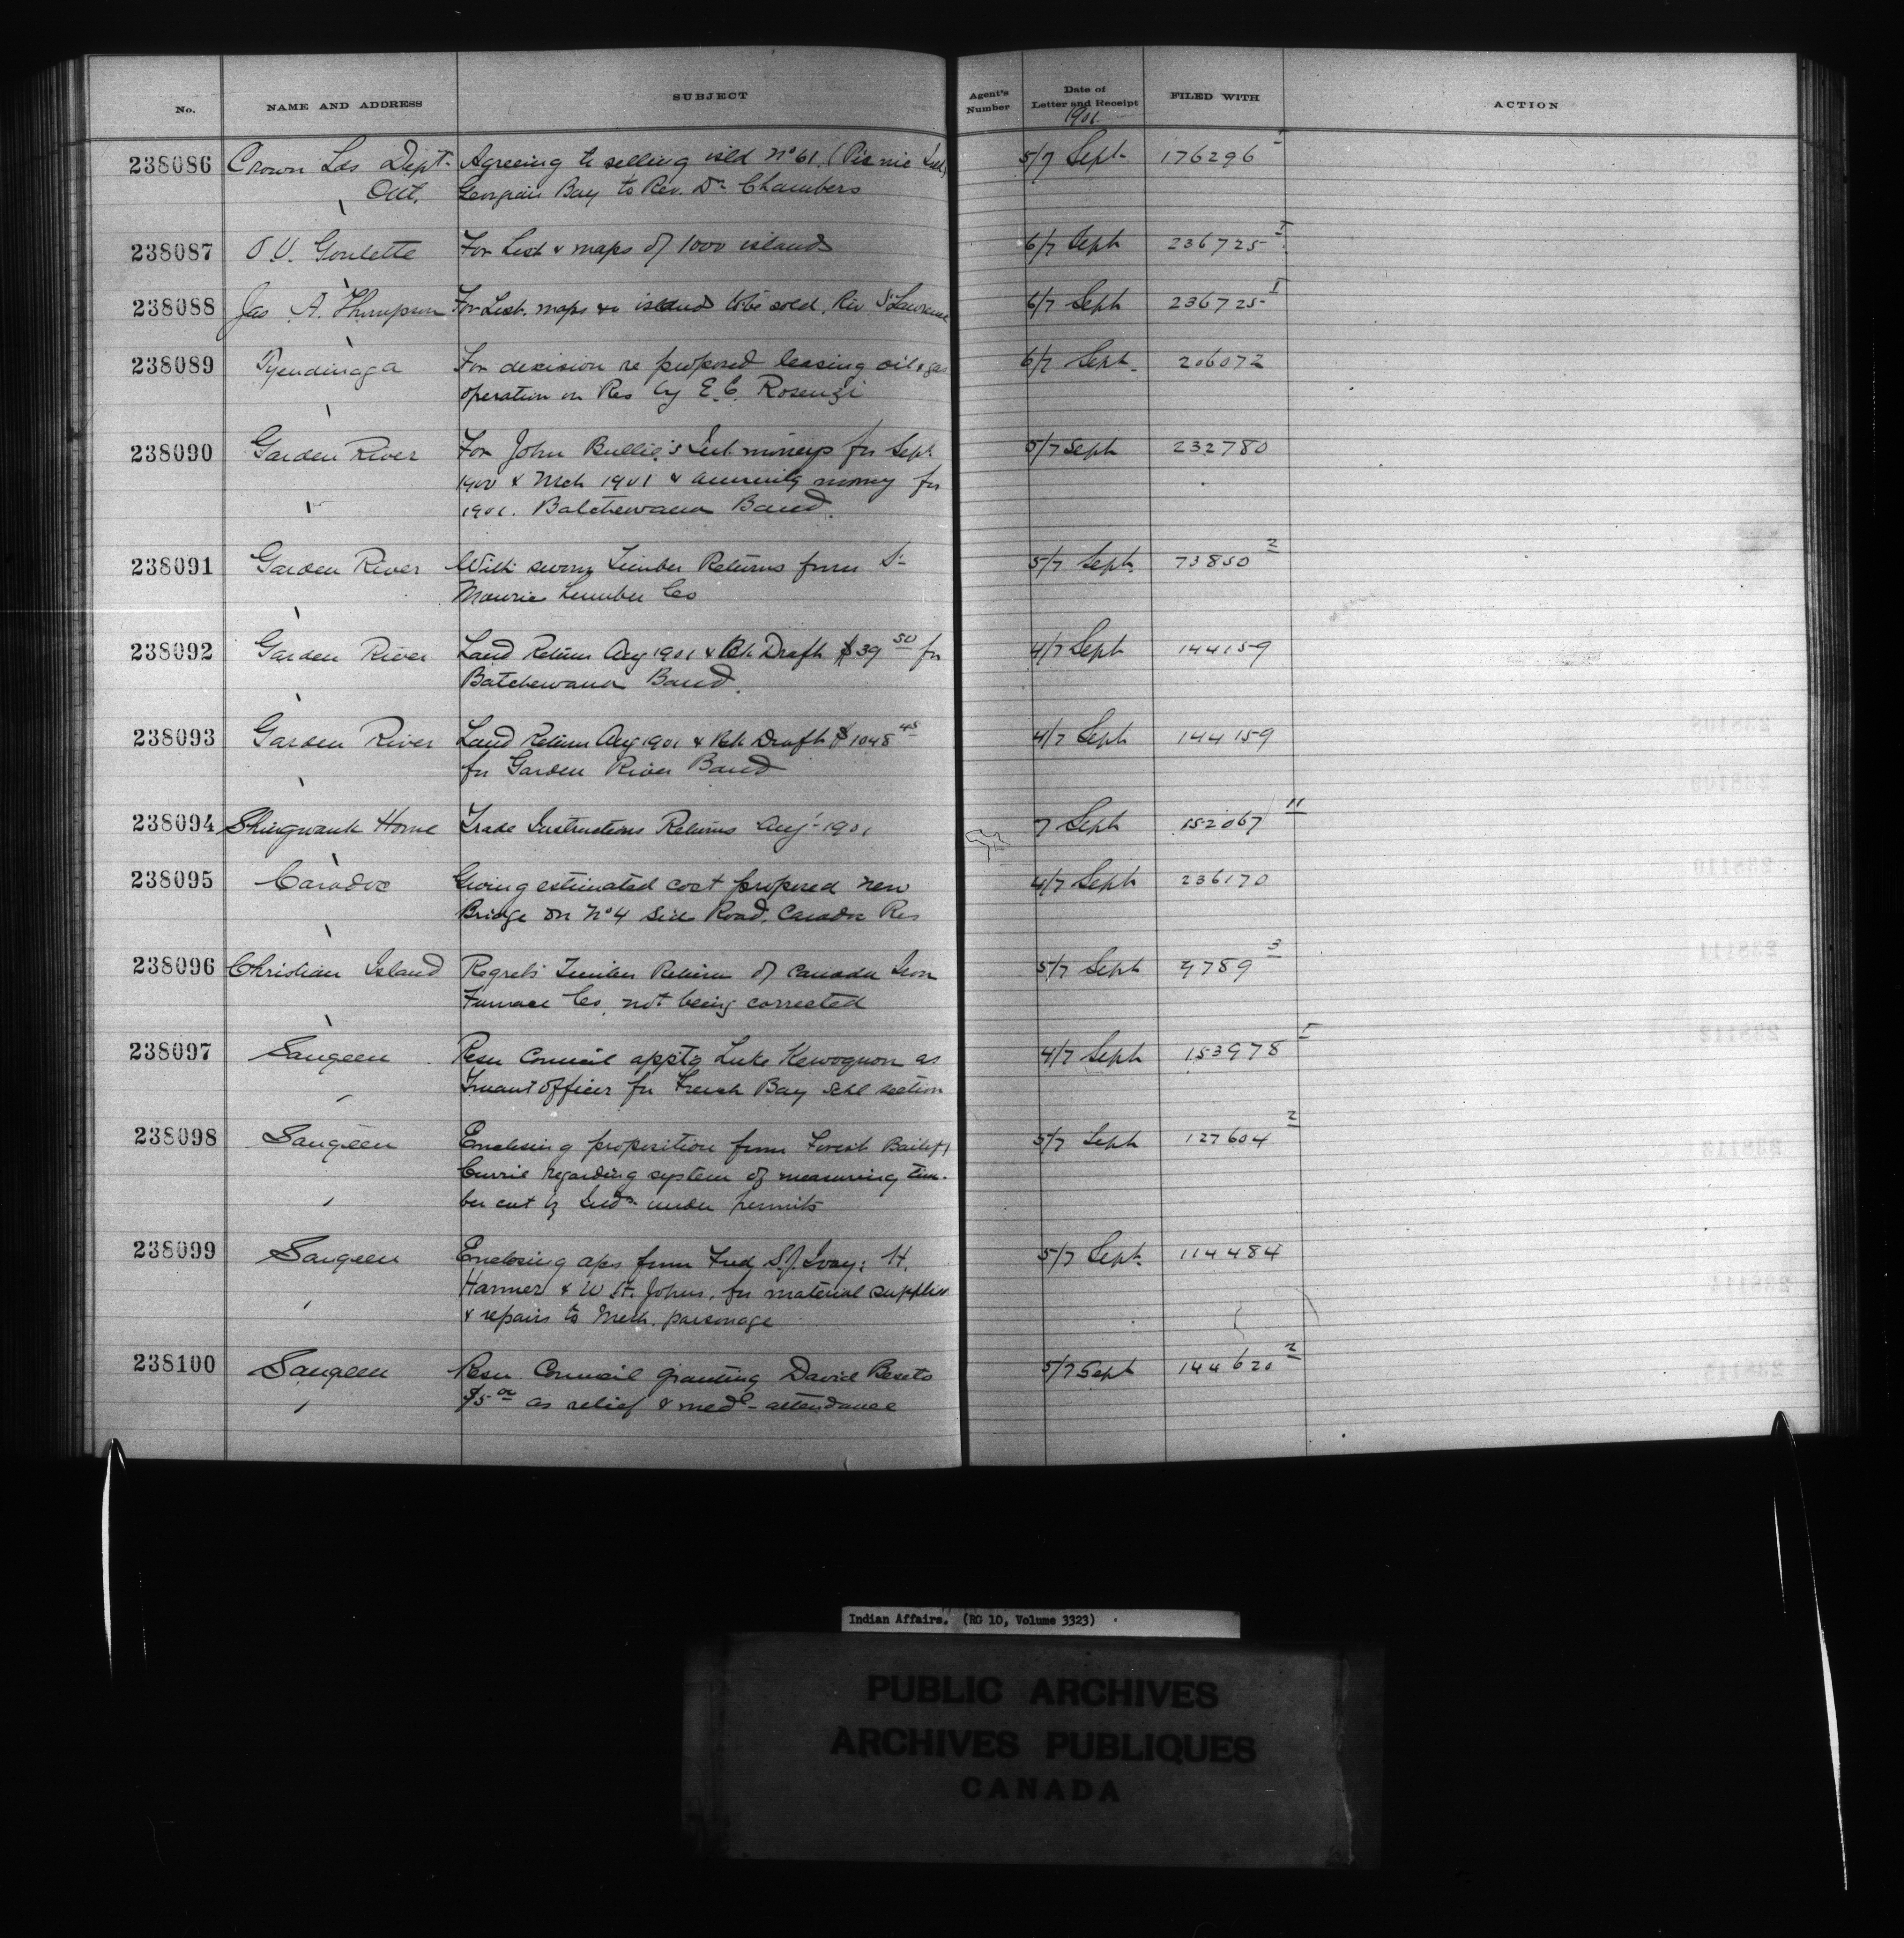 No. NAME AND ADDRESS SUBJECT Agent's Number Date of Letter and Receipt FILED WITH ACTION
1901
238086 Crown Lds Dept. Agreeing to selling isld No 61 (Picnic Isld) 5/7 Sept 176296 1
Ont. Georgian Bay to Rev. Dr Chambers
238087 O.V. Goulette For List & maps of 1000 islands 6/7 Sept 236725 1
238088 Jas A. Thompson For List. maps &c islands to be sold, Riv St Lawrence 6/7 Sept 236725 1
238089 Tyendinaga For decision re proposed leasing oil & gas 6/7 Sept 206072
operation on Res by E.C. Rosenzi
238090 Garden River For John Int. moneys for Sept. 5/7 Sept 232780
1900 & Mch 1901 & annuity money for
1901. Batchewana Band.
238091 Garden River With sworn Timber Returns from St 5/7 Sept. 73850 2
Maurice Lumber Co
238092 Garden River Land Return Aug 1901 & Bk Draft $39 50 for 4/7 Sept 144159
Batchewana Band.
238093 Garden River Land Return Aug 1901 & Bk Draft $1048 45 4/7 Sept 144159
for Garden River Band
238094 Shingwauk Home Trade Instructions Returns Aug - 1901 7 Sept 152067 11
238095 Caradoc Giving estimated cost proposed new 4/7 Sept 236170
Bridge on No 4 Side Road, Caradoc Res
238096 Christian Island Regrets Timber Return of Canada Iron 5/7 Sept 9789 3
Furnace Co. not being corrected
238097 Saugeen Resn Council apptg Luke Kewoquom as 4/7 Sept 153978 1
Truant Officer for French Bay Schl section
238098 Saugeen Enclosing proposition from Forest Bailiff 5/7 Sept 127604 2
Currie regarding system of measuring tim-
ber cut by Inds under permits
238099 Saugeen Enclosing a/cs from Fred S.J. Ivay: H. 5/7 Sept. 114484
Harmer & W St. Johns, for material supplied
& repairs to Meth. parsonage
238100 Saugeen Resn Council granting David Besito 5/7 Sept 144620 2
$5 00 as relief & medl - attendance
Indian Affairs. (RG 10, Volume 3323)
PUBLIC ARCHIVES
ARCHIVES PUBLIQUES
CANADA